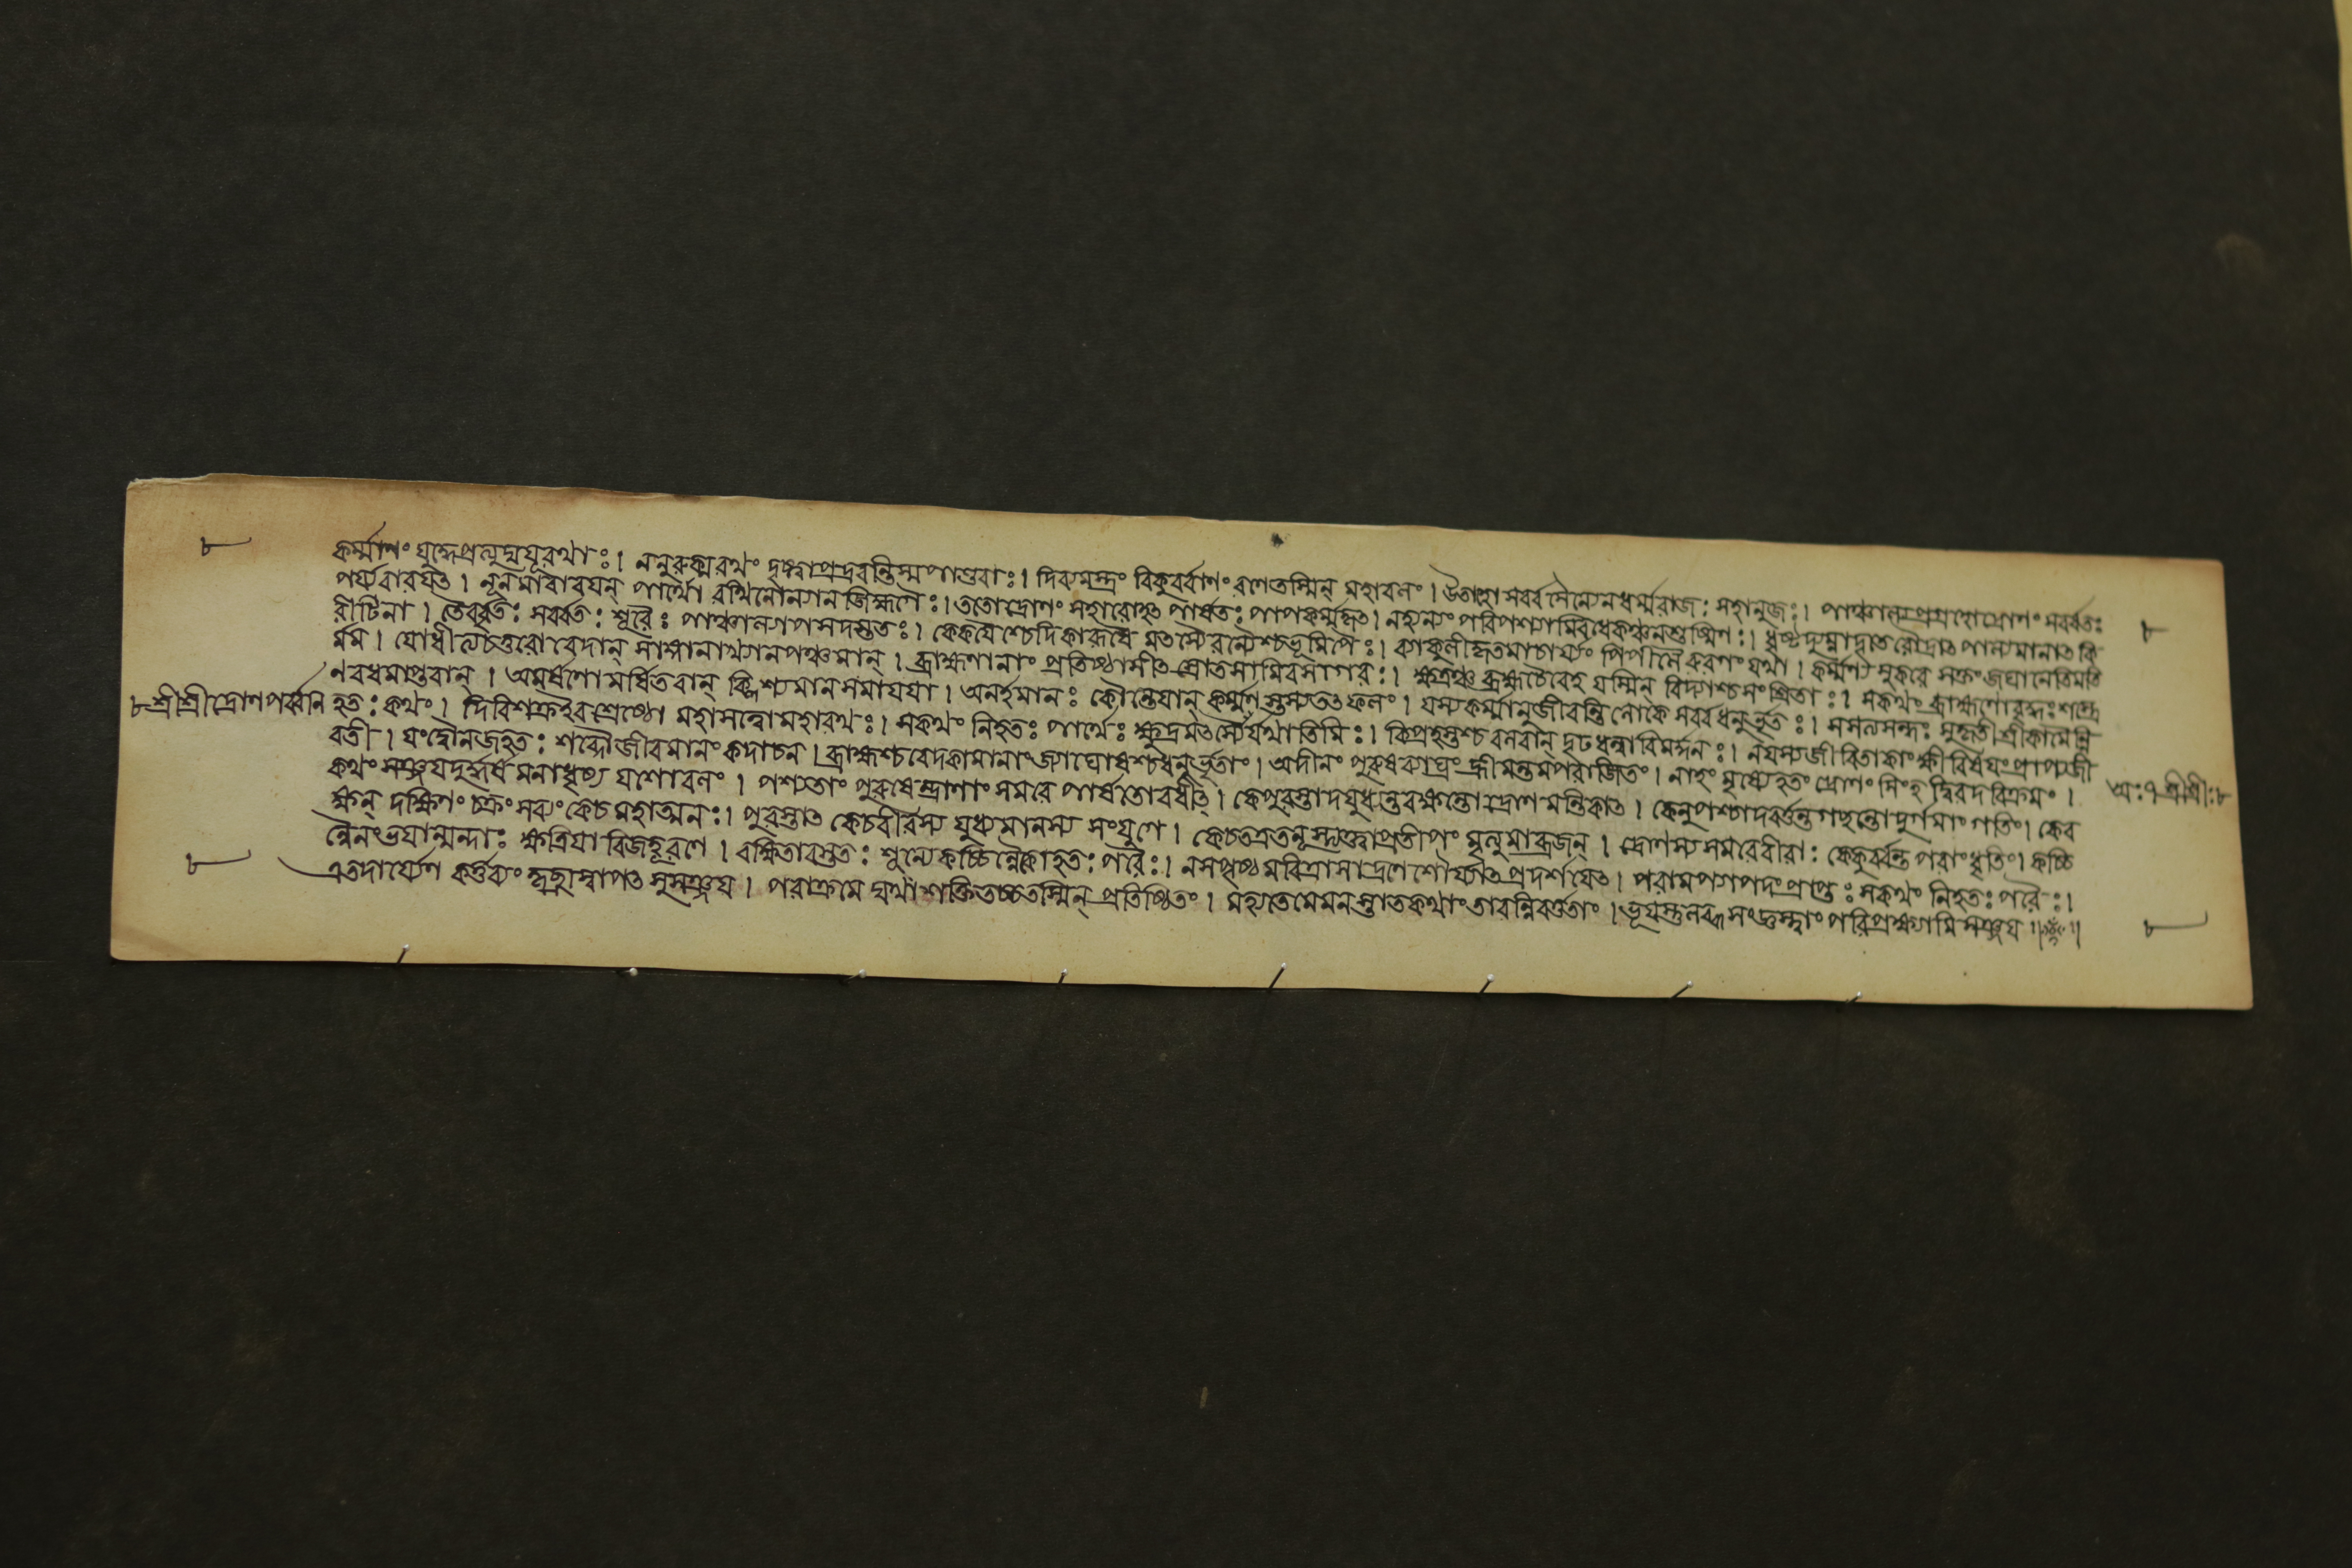 ৮
কর্ম্মাণং যুদ্ধেপ্রত্যুদ্যযূরথাঃ । ননুরুক্মরথং দৃষ্ট্বাপ্রদ্রবন্তিস্মপাণ্ডবাঃ । দিব্যমস্ত্রং বিকুর্ব্বাণং রণেতস্মিন্ মহাবলং । উতাহো সর্ব্বসৈন্যেনধর্ম্মরাজঃ সহানুজঃ । পাঞ্চাল্যপ্রগ্রহোদ্রোণং সর্ব্বতঃ
পর্য্যবারয়ৎ । নূনমাবারয়ন্ পার্থো রথিনোন্যানজিহ্মগৈঃ । ততোদ্রোণং সমারোহৎ পার্ষতঃ পাপকর্ম্মকৃৎ । নহ্যন্যং পরিপশ্যামিবধেকঞ্চনশুষ্মিণঃ । ধৃষ্টদ্যুম্নাদৃতে রৌদ্রাৎ পাল্যমানাৎ কি
রীটিনা । তৈর্বৃতঃ সর্ব্বতঃ শূরৈঃ পাঞ্চাল্যাপসদস্ততঃ । কেকয়ৈশ্চেদিকারূষৈ র্মৎস্যৈরন্যৈশ্চভূমিপৈঃ । ব্যাকুলীকৃতমাচার্য্যং পিপীলৈরুরগং যথা । কর্ম্মণ্যসুকরে সক্তং জঘানেতিমতি
র্মম । যোধীত্যচতুরোবেদান্ সাঙ্গানাখ্যানপঞ্চমান্ । ব্রাহ্মণানাং প্রতিষ্ঠাসীৎ স্রোতসামিবসাগরঃ । ক্ষত্রঞ্চ ব্রহ্মচৈবেহ যস্মিন্ বিদ্যাশ্চসংশ্রিতাঃ । সকথং ব্রাহ্মণোবৃদ্ধঃ শস্ত্রে
ণবধমাপ্তবান্ । অমর্ষণোমর্ষিতবান্ ক্লিশ্যমানসমাযয়া । অনর্হমানঃ কৌন্তেয়ান্ কর্ম্মণস্তস্যতৎফলং । যস্যকর্ম্মানুজীবন্তিলোকে সর্ব্বধনুর্ভৃতঃ । সসত্যসন্ধঃ সুকৃতীশ্রীকামৈর্নি
৮ শ্রীশ্রীদ্রোণপর্ব্বনি
হতঃ কথং । দিবিশক্রইবশ্রেষ্ঠো মহাসত্ত্বোমহারথঃ । সকথং নিহতঃ পার্থৈঃ ক্ষুদ্রমৎস্যৈর্যথাতিমিঃ । ক্ষিপ্রহস্তশ্চ বলবান্ দৃঢধন্বাবিমর্দ্দনঃ । নযস্যজীবিতাকাংক্ষীবিষয়ংপ্রাপ্যজী
বতী । যংদ্বৌনজহতঃ শব্দৌজীবমানং কদাচন । ব্রাহ্মশ্চবেদকামানাং জ্যাঘোষশ্চধনুর্ভৃতাং । অদীনং পুরুষব্যাঘ্রং হ্রীমন্তমপরাজিতং । নাহং মৃষ্যেহতং দ্রোণং সিংহদ্বিরদবিক্রমং ।
অঃ ৭ শ্রীশ্রীঃ ৮
কথং সঞ্জয়দুর্দ্ধর্ষ মনাধৃষ্য যশোবলং । পশ্যতাং পুরুষেন্দ্রাণাং সমরে পার্ষতোবধীৎ । কেপুরস্তাদযুধ্যন্তরক্ষন্তো দ্রোণমন্তিকাৎ । কেনুপশ্চাদবর্ত্তন্তগচ্ছন্তোদুর্গমাং গতিং । কের
ক্ষন্ দক্ষিণং চক্রং সব্যং কেচমহাত্মনঃ । পুরস্তাৎ কেচবীরস্য যুধ্যমানস্য সংযুগে । কেচতত্রতনূস্ত্যক্ত্বাপ্রতীপং মৃত্যুমাব্রজন্ । দ্রোণস্যসমরেবীরাঃ কেকুর্ব্বন্ত পরাংধৃতিং । কচ্চি
ন্নৈনংভয়ান্মন্দাঃ ক্ষত্রিয়াবিজহূরণে । রক্ষিতারস্ততঃ শূন্যেকচ্চিন্নৈকোহতঃ পরৈঃ । নসপৃষ্ঠমরিত্রাসাদ্রণেশৌর্য্যাৎপ্রদর্শয়েৎ । পরামপ্যাপদংপ্রাপ্তঃ সকথং নিহতঃ পরৈঃ ।
এতদার্য্যেণ কর্ত্তব্যং কৃচ্ছ্রাস্বাপৎসুসঞ্জয় । পরাক্রমে দ্যথাশক্তিতচ্চতস্মিন্ প্রতিষ্ঠিতং । মহ্যতেমেমনস্তাতকথাংতাবন্নিবর্ত্ততাং । ভূয়স্তুলব্ধসংজ্ঞস্ত্বাং পরিপ্রক্ষ্যামিসঞ্জয় ॥ ॥
৮
৮
৮